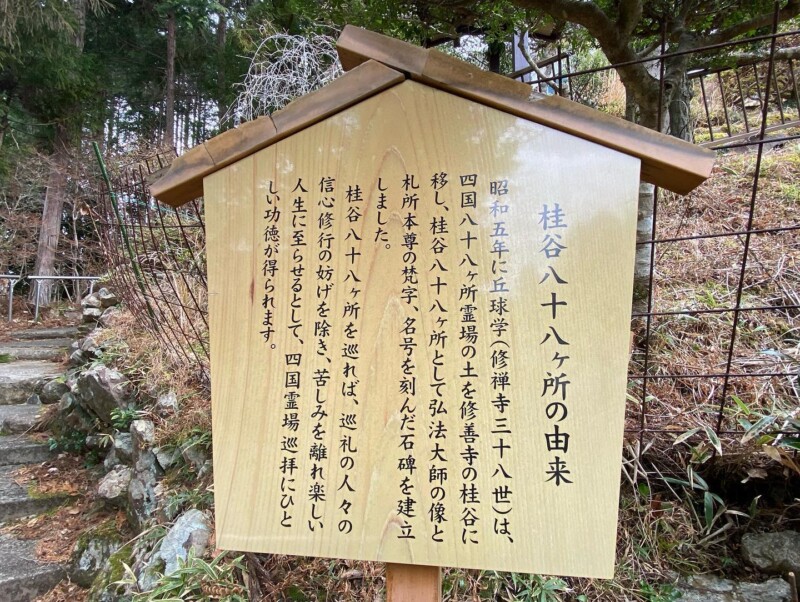 桂谷八十八ヶ所の由来
昭和五年に丘球学(修禅寺三十八世)は、
四国八十八ヶ所霊場の土を修善寺の桂谷に
移し、桂谷八十八ヶ所として弘法大師の像と
札所本尊の梵字、名号を刻んだ石碑を建立
しました。
桂谷八十八ヶ所を巡れば、巡礼の人々の
信心修行の妨げを除き、苦しみを離れ楽しい
人生に至らせるとして、四国霊場巡拝にひと
しい功徳が得られます。